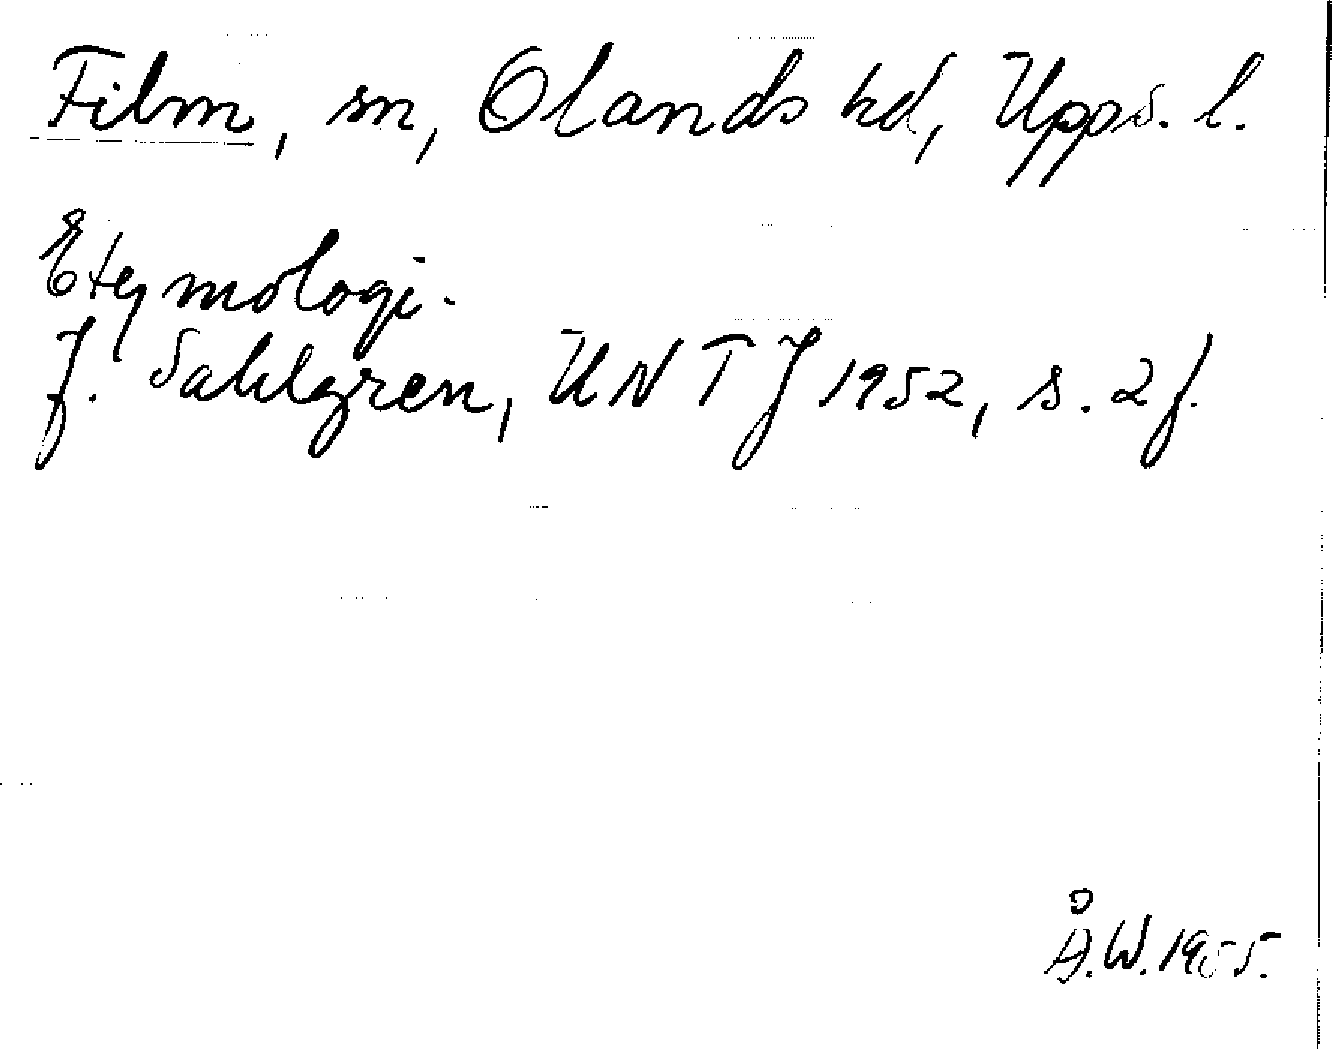 Film, sn, Olands hd, Upps. l.
Etymologi.
J. Sahlgren, UNTJ 1952, s. 2 f.
Å.W. 1955.